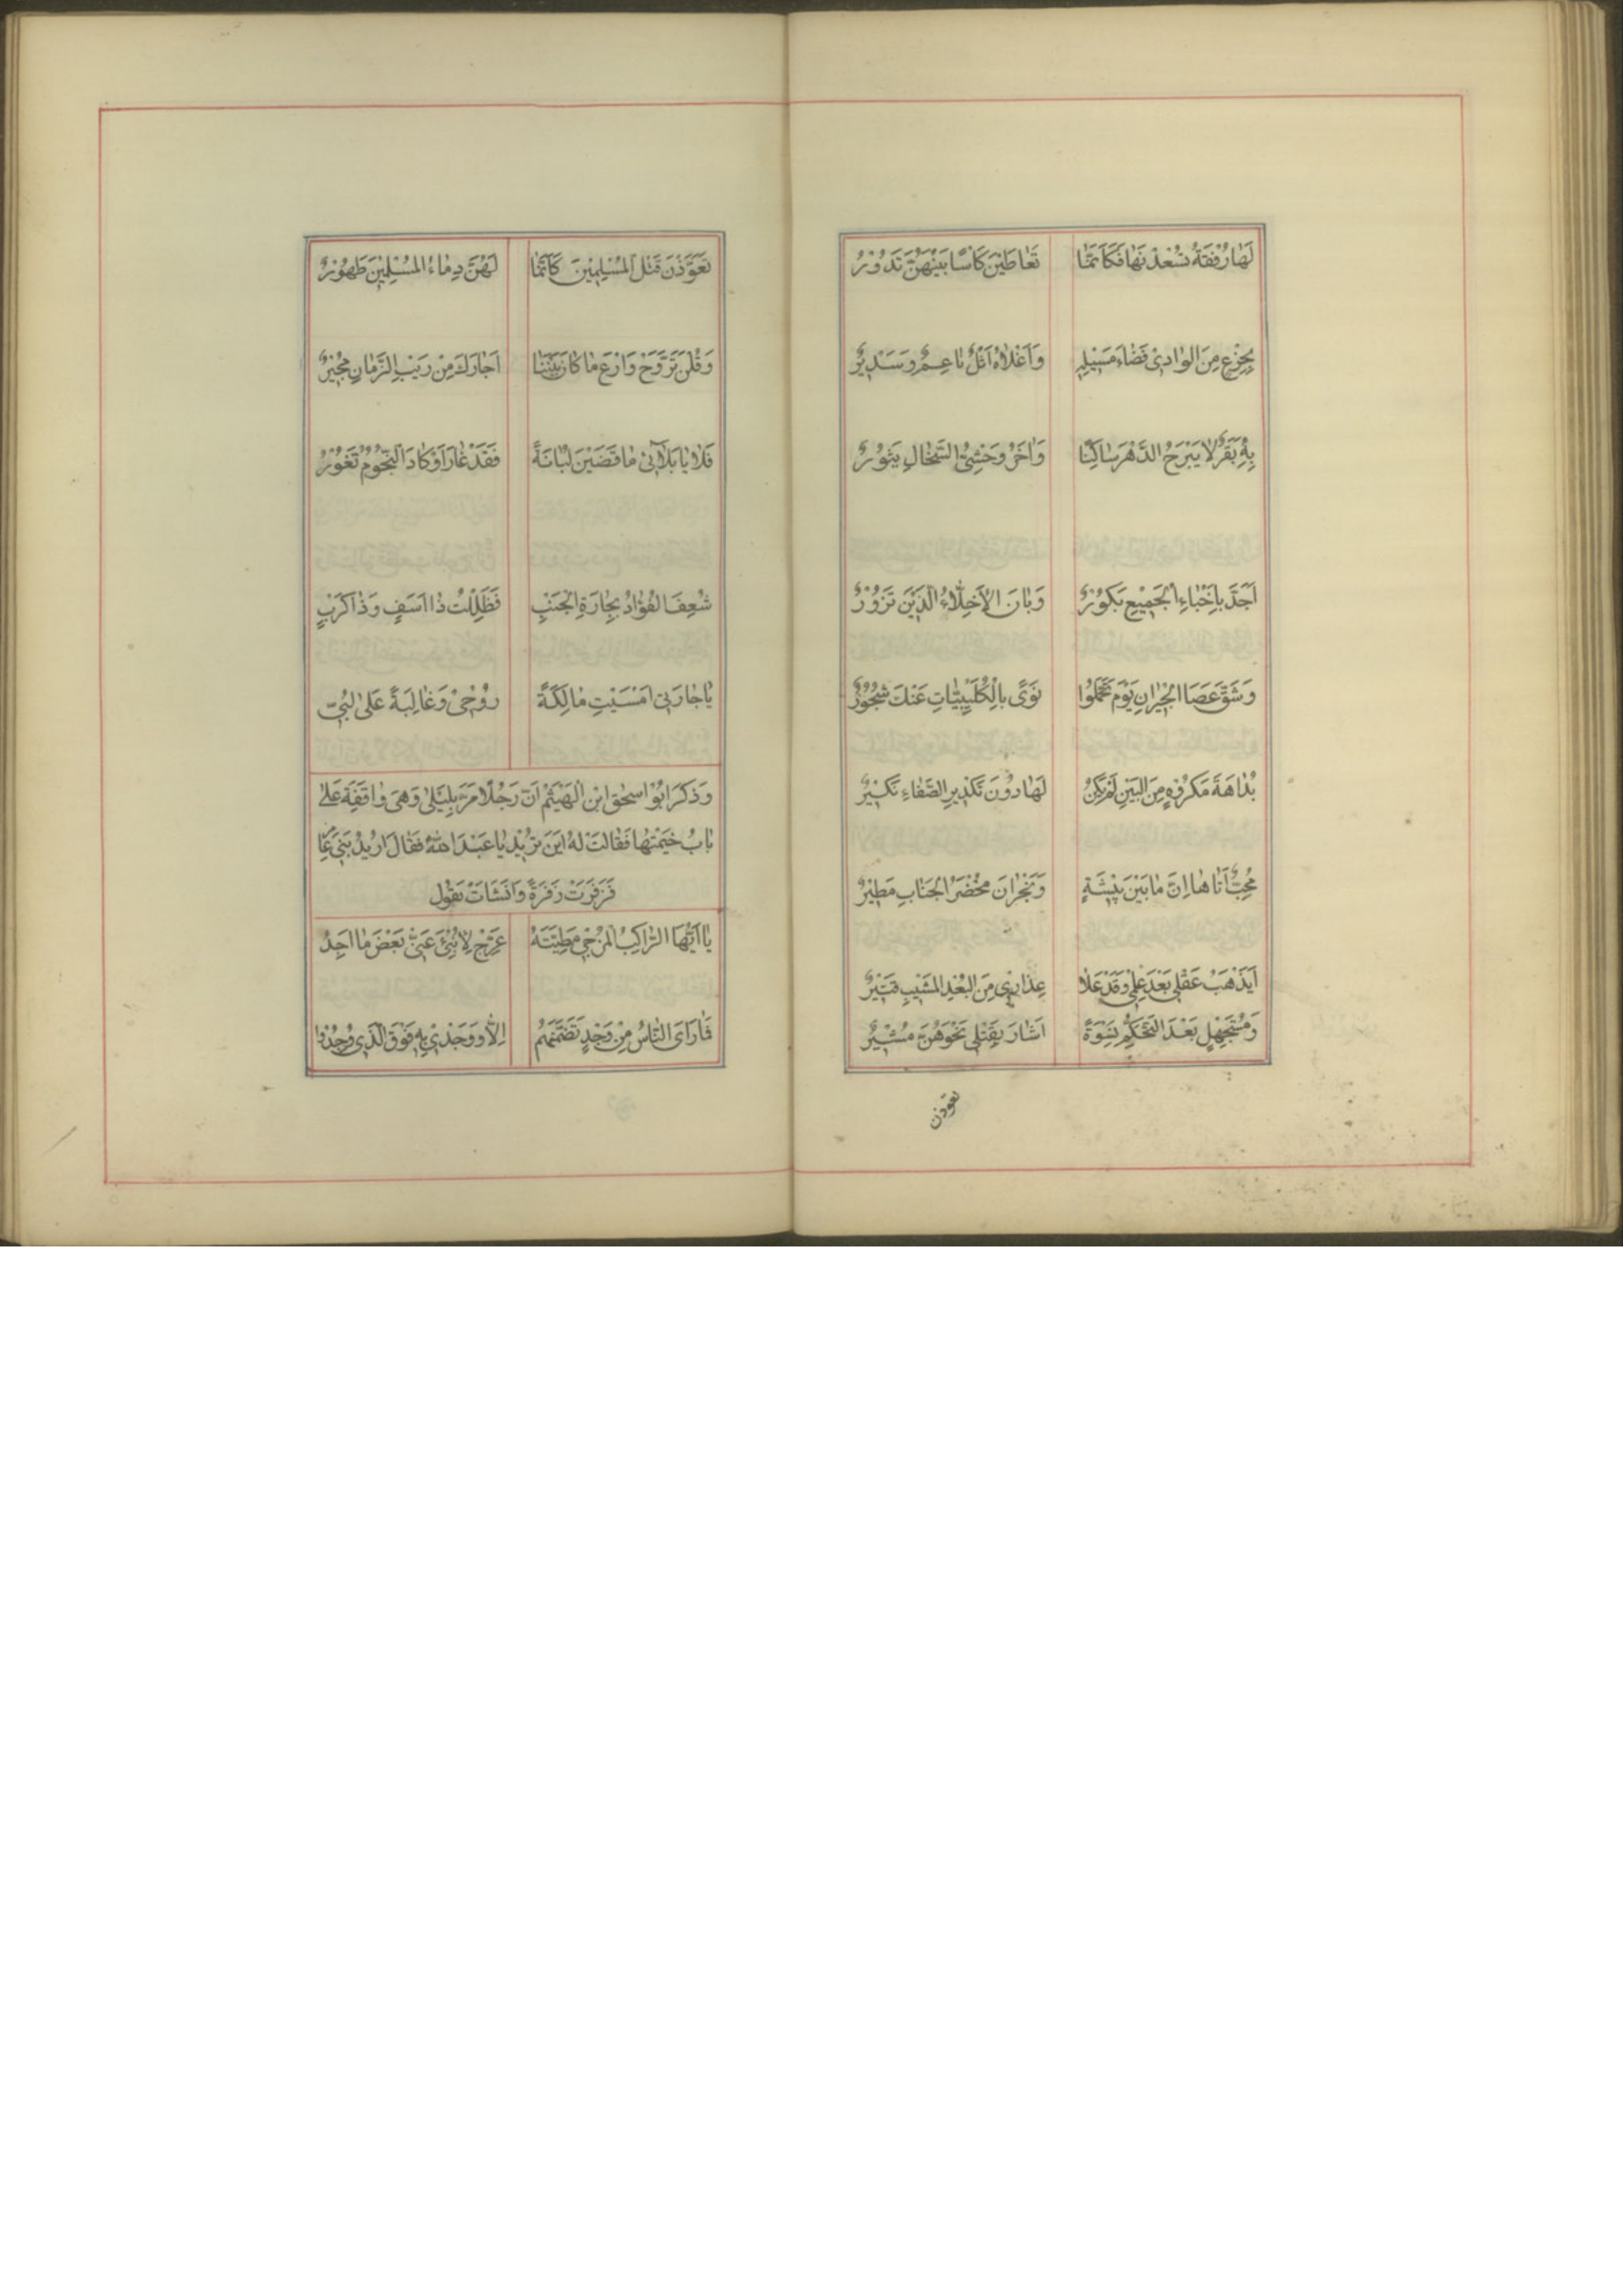 لَهٰا رُفْقَةٌ تُسْعِدْنَهٰا فَكَاَنَّمٰا تَعٰاطَيْنَ كَاْسًا بَيْنَهُنَّ تَدُوْرُ
بِجِزْعٍ مِنَ الوٰادِىْ فَضٰاءٍ مَسِيْلِهٖ وَاَعْلاٰهُ اَثْلٌ نٰاعِمٌ وَسَدِيْرٌ
بِهٖ بَقَرٌ لاٰ يَبْرَحُ الدَّهْرَ سٰاكِنًا وَاٰخَرُ وَحْشِىُّ السَّخٰالِ يَثُوْرُ
اَجَدَّ بِاَخْبٰاءِ الْجَمِيْعِ بَكُوْرُ وَبٰانَ الاَخِلّاٰءُ الَّذِيْنَ تَزُوْرُ
وَشَقَّ عَصَا الْجِيْرٰانِ يَوْمَ تَحَمَّلُوْا نَوًى بِالْكُلَيْبِيّٰاتِ عَنْكَ شَجُوْرُ
بُدٰاهَةَ مَكْرُوْهٍ مِنَ البَيْنِ لَمْ يَكُنْ لَهٰا دُوْنَ تَكْدِيْرِ الصَّفٰاءِ نَكِيْرٌ
مُحِبٌّ اَتٰاهٰا اِنَّ مٰا بَيْنَ بِيْشَةٍ وَنَجْرٰانَ مُخْضَرُّ الجَنٰابِ مَطِيْرُ
اَيَذْهَبُ عَقْلِىْ بَعْدَ عِلْمِىْ وَقَدْ عَلاٰ عِذٰارِىْ مِنَ البُعْدِ المَشِيْبِ قَتِيْرٌ
وَمُسْتَجْهِلٍ بَعْدَ التَّحَكُّمِ نِسْوَةً اَشٰارَ بِقَتْلِىْ نَحْوَهُنَّ مُشِيْرُ
تعوّذن
تَعَوَّذْنَ قَتْلَ المُسْلِمِيْنَ كَاَنَّمٰا لَهُنَّ دِمٰاءُ المُسْلِمِيْنَ طَهُوْرُ
وَقُلْنَ تَرَوَّحْ وَارْعَ مٰا كٰانَ بَيْنَنٰا اَجٰارَكَ مِنْ رَيْبِ الزَّمٰانِ مُجِيْرُ
فَلاٰ يٰا بَلاٰئِىْ مٰا قَضَيْنَ لُبٰانَةً فَقَدْ غٰارَ اَوْ كٰادَ النُّجُوْمُ تَغُوْرُ
شُعِفَ الفُؤٰادُ بِجٰارَةِ الْجَنْبِ فَظَلِلْتُ ذٰا اَسَفٍ وَذٰا كَرْبٍ
يٰا جٰارَتِىْ اَمْسَيْتِ مٰالِكَةً رُوْحِىْ وَغٰالِبَةً عَلىٰ لُبِّىْ
وَذَكَرَ ابُوْ اسحٰق ابن الْهَيْثَمْ اَنّ رَجُلًا مَرّ بِلَيْلىٰ وَهِىَ وٰاقِفَةٌ عَلىٰ
بٰابِ خَيْمَتِهٰا فَقٰالَتْ لَهُ اَيْنَ تُرِيْدُ يٰا عَبْدَ اللّٰهْ فَقٰالَ اُرِيْدُ بَنِىْ عٰا
فَزَفَرَتْ زَفْرَةً وَاَنْشَاَتْ تَقُوْل
يٰا اَيُّهَا الرّٰاكِبُ المُزْجِىْ مَطِيَّتَهُ عَرِّجْ لِاُنْبِئَ عَنِّىْ بَعْضَ مٰا اَجِدُ
فَمٰا رَاَى النّٰاسُ مِنْ وَجْدٍ تَضَمَّنَهُمْ اِلاّٰ وَوَجْدِىْ بِهٖ فَوْقَ الَّذِىْ وُجِدُوْا